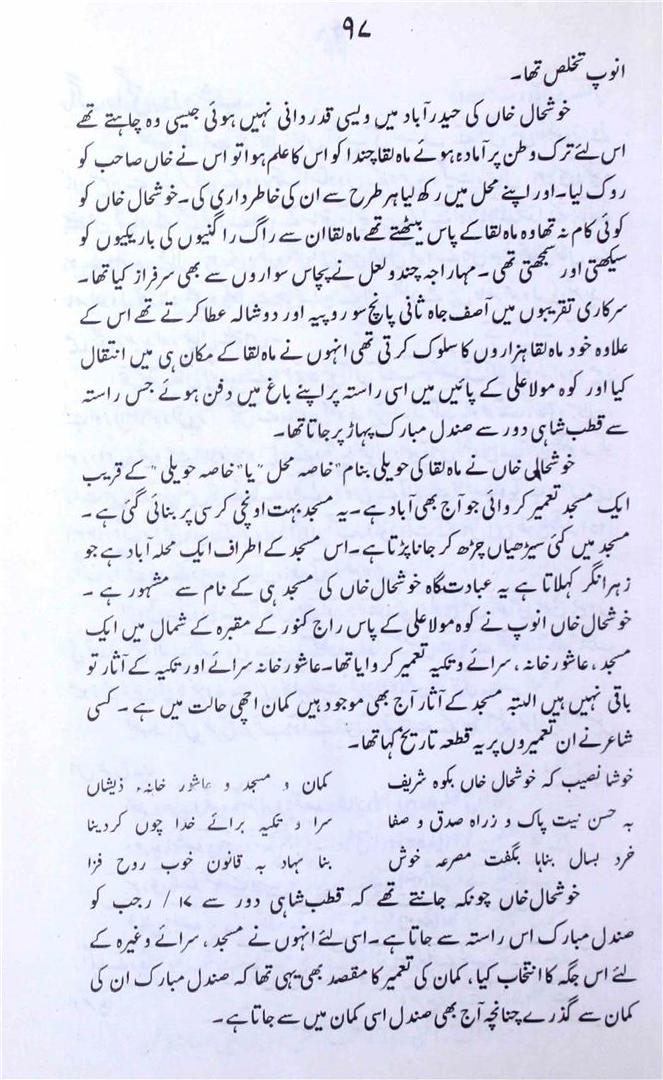 ۹۷
انوپ تخلص تھا۔
خوشحال خاں کی حیدرآباد میں ویسی قدر دانی نہیں ہوئی جیسی وہ چاہتے تھے
اس لئے ترک وطن پر آمادہ ہوئے ماہ لقا چندا کو اس کا علم ہوا تو اس نے خاں صاحب کو
روک لیا۔ اور اپنے محل میں رکھ لیا ہر طرح سے ان کی خاطر داری کی۔ خوشحال خاں کو
کوئی کام نہ تھا وہ ماہ لقا کے پاس بیٹھتے تھے ماہ لقا ان سے راگ راگنیوں کی باریکیوں کو
سیکھتی اور سمجھتی تھی۔ مہاراجہ چندو لعل نے پچاس سواروں سے بھی سرفراز کیا تھا۔
سرکاری تقریبوں میں آصف جاہ ثانی پانچ سو روپیہ اور دو شالہ عطا کرتے تھے اس کے
علاوہ خود ماہ لقا ہزاروں کا سلوک کرتی تھی انہوں نے ماہ لقا کے مکان ہی میں انتقال
کیا اور کوہ مولا علی کے پائیں میں اسی راستہ پر اپنے باغ میں دفن ہوئے جس راستہ
سے قطب شاہی دور سے صندل مبارک پہاڑ پر جاتا تھا۔
خوشحال خاں نے ماہ لقا کی حویلی بنام "خاصہ محل" یا "خاصہ حویلی" کے قریب
ایک مسجد تعمیر کروائی جو آج بھی آباد ہے۔ یہ مسجد بہت اونچی کرسی پر بنائی گئی ہے۔
مسجد میں کئی سیڑھیاں چڑھ کر جانا پڑتا ہے۔ اس مسجد کے اطراف ایک محلہ آباد ہے جو
زہرا نگر کہلاتا ہے یہ عبادت گاہ خوشحال خاں کی مسجد ہی کے نام سے مشہور ہے۔
خوشحال خاں انوپ نے کوہ مولا علی کے پاس راج کنور کے مقبرہ کے شمال میں ایک
مسجد، عاشور خانہ، سرائے و تکیہ تعمیر کروایا تھا۔ عاشور خانہ سرائے اور تکیہ کے آثار تو
باقی نہیں ہیں البتہ مسجد کے آثار آج بھی موجود ہیں کمان اچھی حالت میں ہے۔ کسی
شاعر نے ان تعمیروں پر یہ قطعہ تاریخ کہا تھا۔
خوشا نصیب کہ خوشحال خاں بکوہ شریف کمان و مسجد و عاشور خانہء ذیشاں
بہ حسن نیت پاک و زراہ صدق و صفا سرا و تکیہ برائے خدا چوں کردینا
خرد بسال بناہا بگفت مصرعہ خوش بنا نہاد بہ قانون خوب روح فزا
خوشحال خاں چونکہ جانتے تھے کہ قطب شاہی دور سے ۱۷/ رجب کو
صندل مبارک اس راستہ سے جاتا ہے۔ اسی لئے انہوں نے مسجد، سرائے وغیرہ کے
لئے اس جگہ کا انتخاب کیا، کمان کی تعمیر کا مقصد بھی یہی تھا کہ صندل مبارک ان کی
کمان سے گذرے چنانچہ آج بھی صندل اسی کمان میں سے جاتا ہے۔